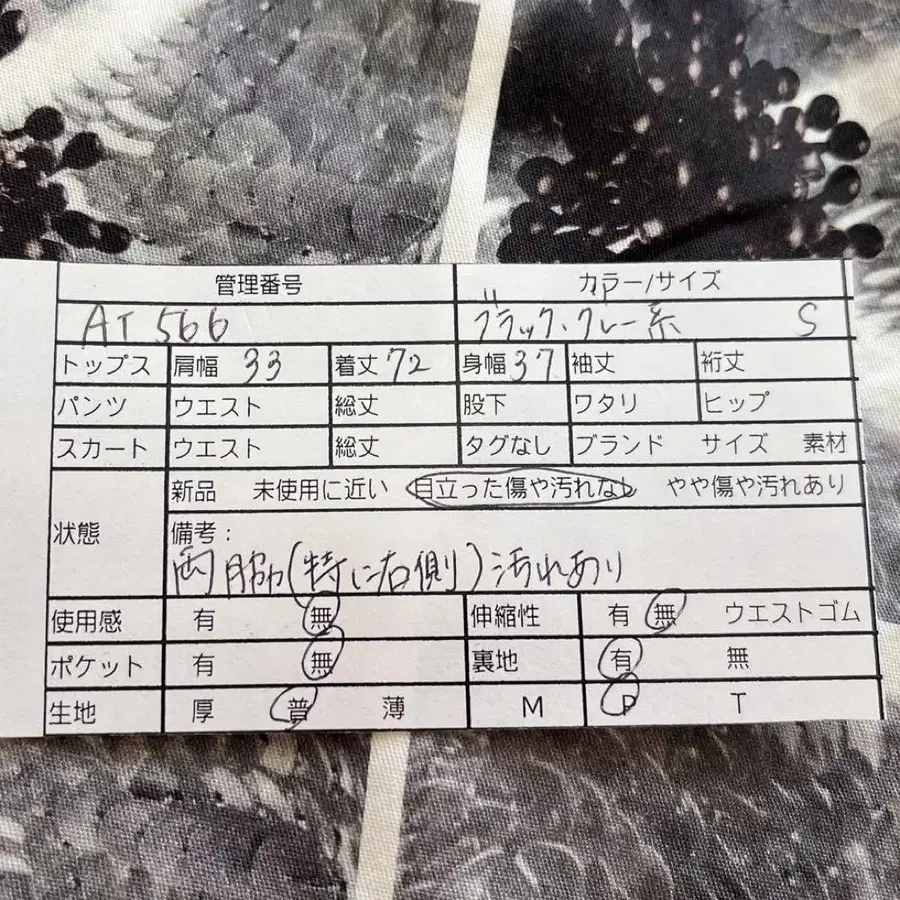 管理番号 カラー/サイズ
AT 566 ブラック・グレー系 S
トップス 肩幅 33 着丈 72 身幅 37 袖丈 裄丈
パンツ ウエスト 総丈 股下 ワタリ ヒップ
スカート ウエスト 総丈 タグなし ブランド サイズ 素材
状態 新品 未使用に近い 目立った傷や汚れなし やや傷や汚れあり
備考:
両脇(特に右側)汚れあり
使用感 有 無 伸縮性 有 無 ウエストゴム
ポケット 有 無 裏地 有 無
生地 厚 普 薄 M P T